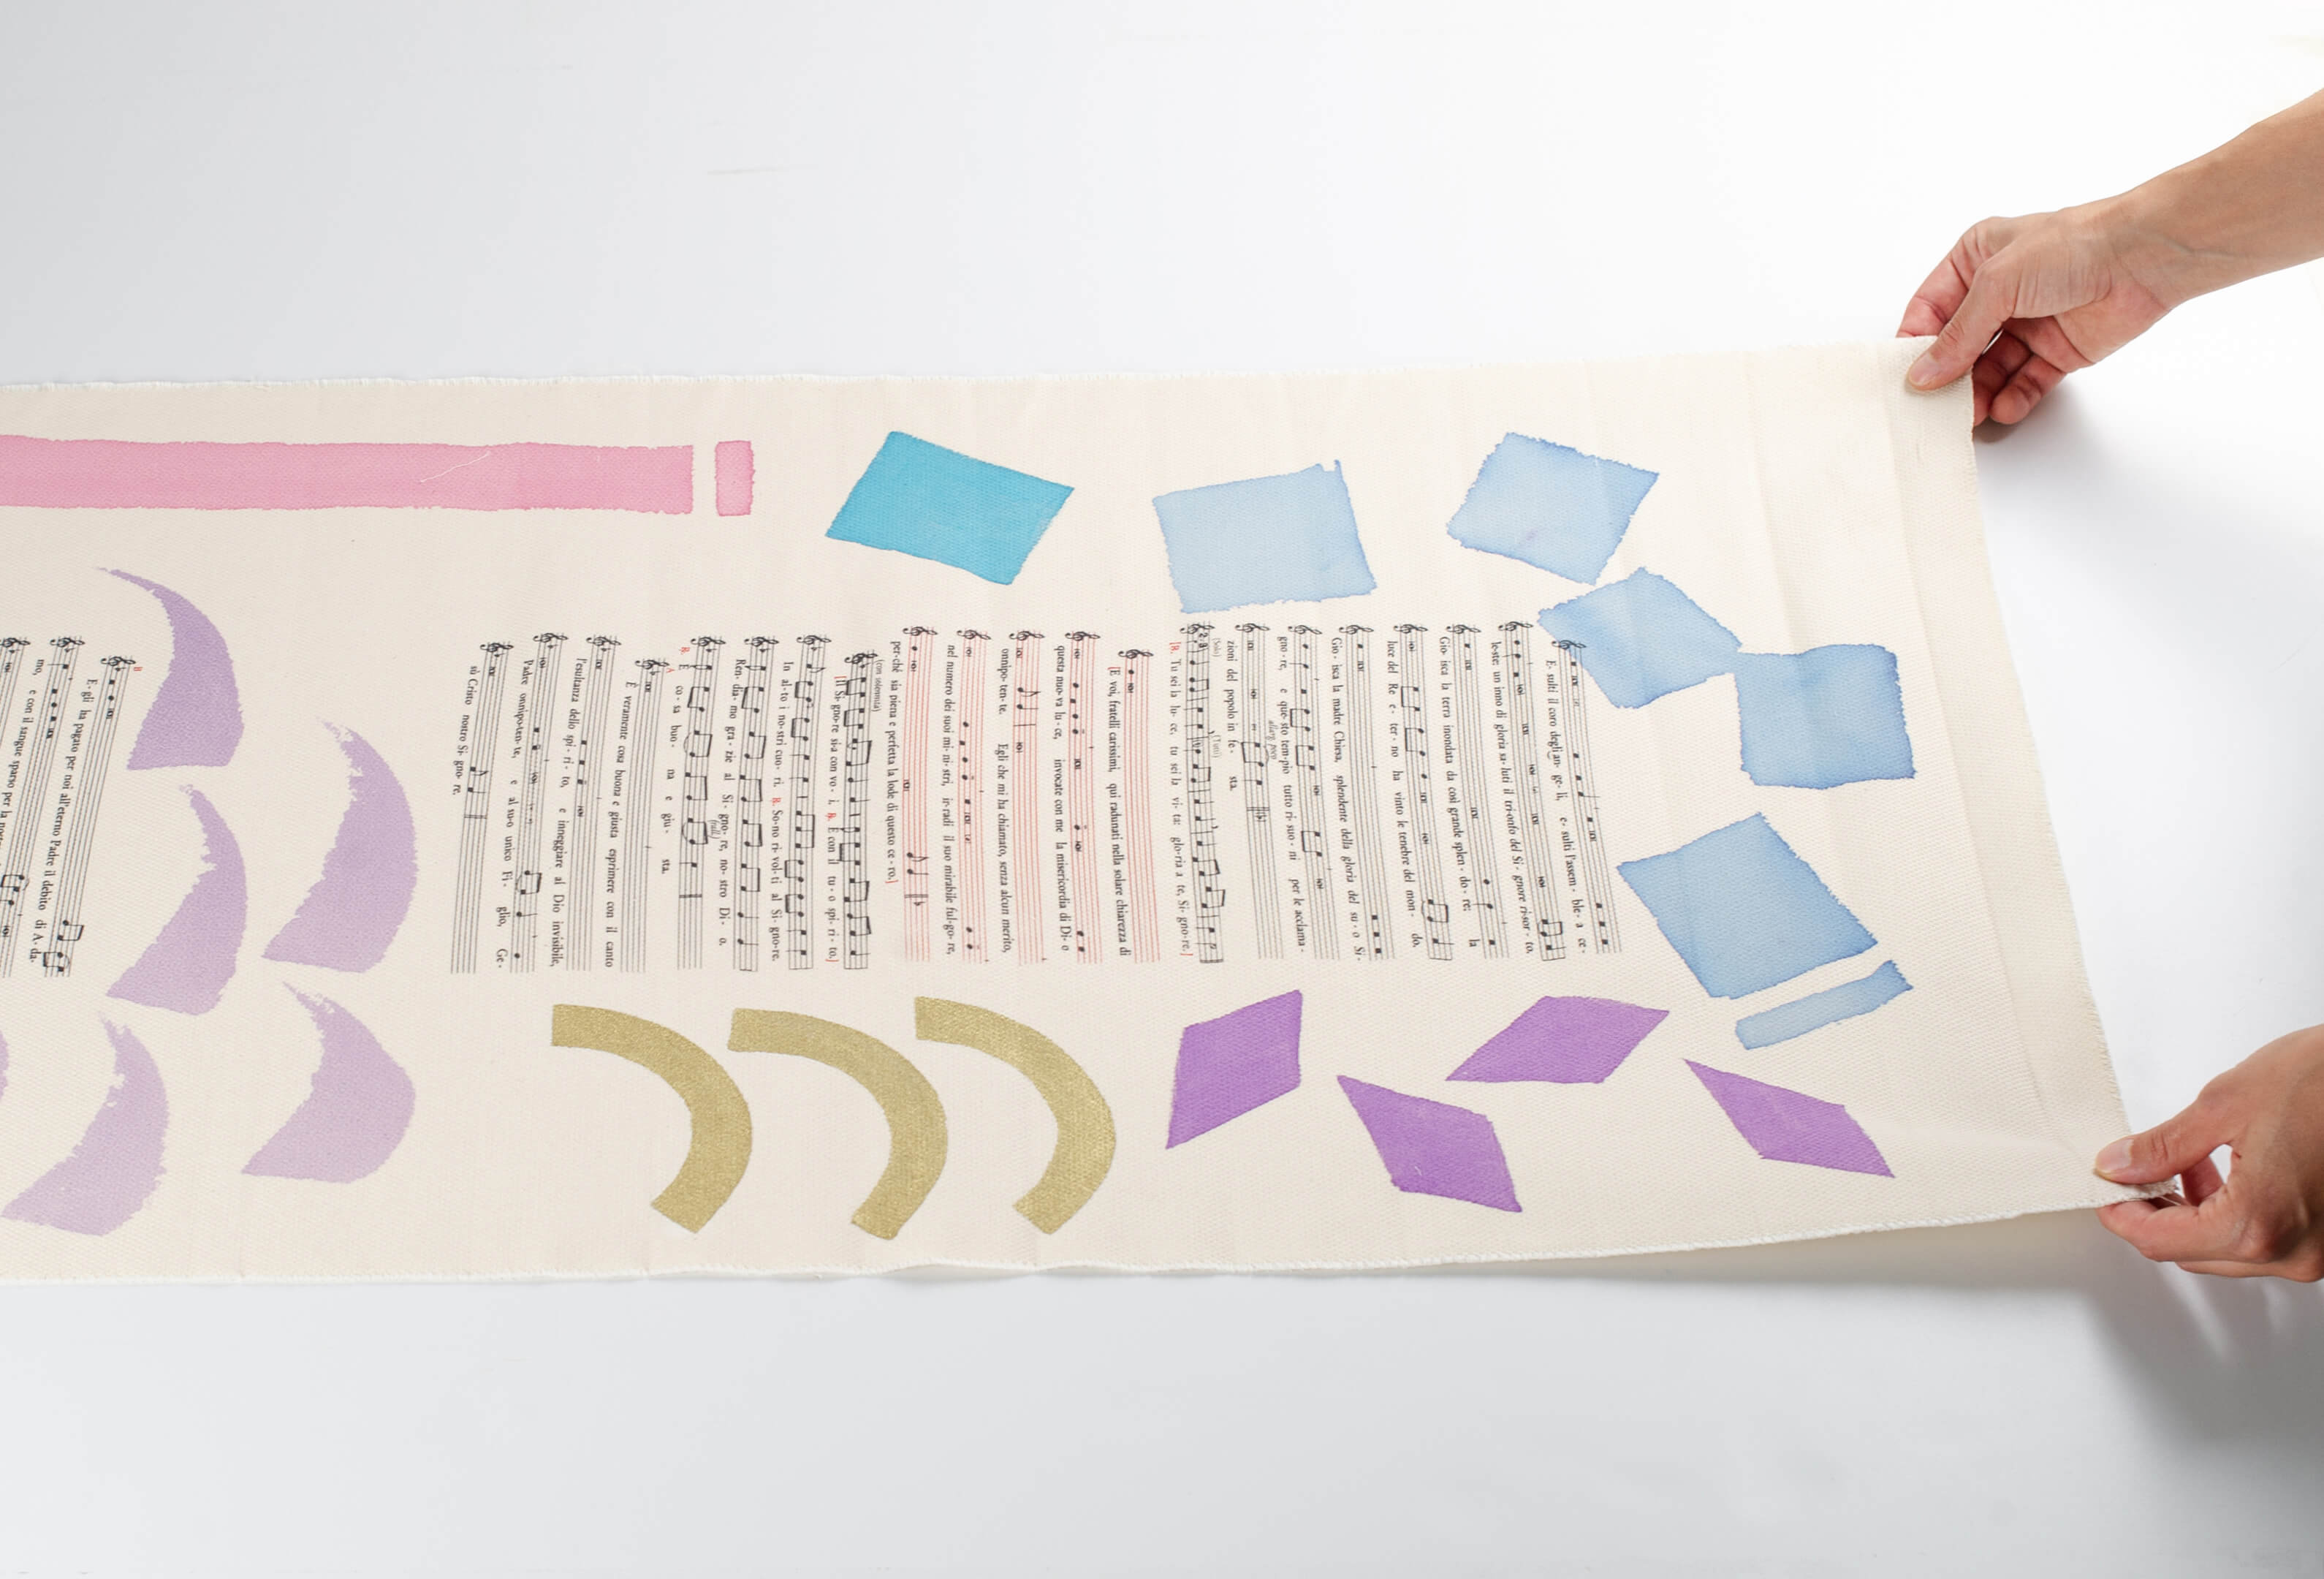 E- sulti il coro degli an- ge- li, e- sulti l'assem- ble- a ce-
le-ste: un inno di gloria sa- luti il trionfo del Si- gnore risor- to.
Gio- isca la terra inondata da così grande splen- do- re: la
luce del Re e- ter- no ha vinto le tenebre del mon- do.
Gio- isca la madre Chiesa, splendente della gloria del su- o Si-
gno- re, e que- sto tem- pio tutto ri- suo- ni per le acclama-
allarg. poco
zioni del popolo in fe- sta.
(Solo) (Tutti)
[R. Tu sei la lu- ce, tu sei la vi- ta: glo-ria a te, Si- gno-re.]
[E voi, fratelli carissimi, qui radunati nella solare chiarezza di
questa nuo-va lu- ce, invocate con me la misericordia di Di- o
onnipo- ten- te. Egli che mi ha chiamato, senza alcun merito,
nel numero dei suoi mi- ni- stri, ir- radi il suo mirabile ful-go- re,
per-ché sia piena e perfetta la lode di questo ce- ro.]
(con solennità)
[Il Si- gno-re sia con vo- i. R. E con il tu- o spi- ri- to.]
In al- to i no-stri cuo- ri. R. So-no ri- vol- ti al Si- gno-re.
Ren- dia- mo gra- zie al Si- gno- re, no- stro Di- o.
R. È co- sa buo- na e giu- sta.
A
È veramente cosa buona e giusta esprimere con il canto
l'esultanza dello spi- ri- to, e inneggiare al Dio invisibile,
Padre onnipo-ten- te, e al su-o unico Fi- glio, Ge-
sù Cristo nostro Si- gno- re.
B
E- gli ha pagato per noi all'eterno Padre il debito di A- da-
mo, e con il sangue sparso per la